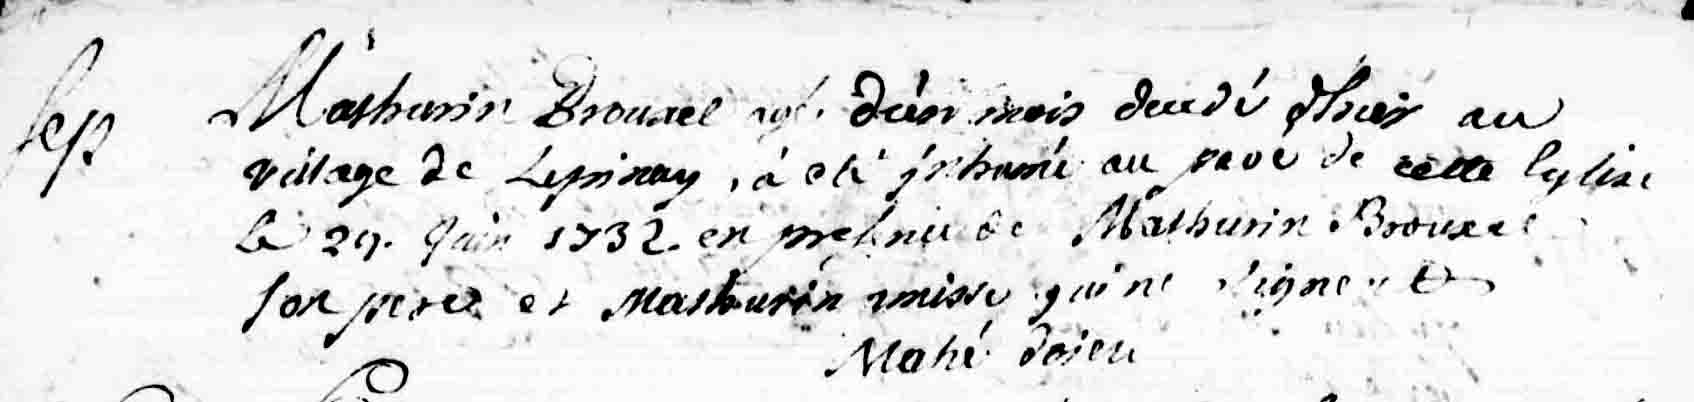 sep
Mathurin Brouxel agé d'un mois decedé d'hier au
village de Lepinay, à eté jnhumé au pavé de cette Eglise
le 29. Juin 1732. en presence de Mathurin Brouxel
son pere et Mathurin qui ne signent
Mahé doien